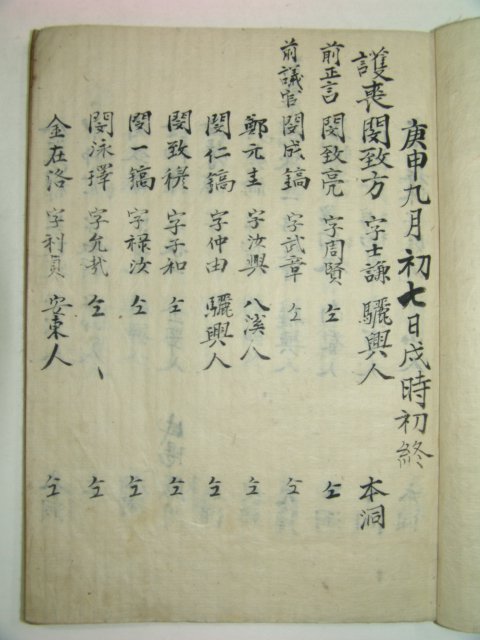 庚申九月初七日戌時初終
護喪 閔致方 字士謙 驪興人 本洞
前正言 閔致亮 字周賢 仝 仝
前議官 閔成鎬 字武章 仝 仝
鄭元圭 字汝興 八溪人 仝
閔仁鎬 字仲由 驪興人 仝
閔致 字子和 仝 仝
閔一鎬 字祿汝 仝 仝
閔泳擇 字允哉 仝 仝
金在洛 字利貞 安東人 仝